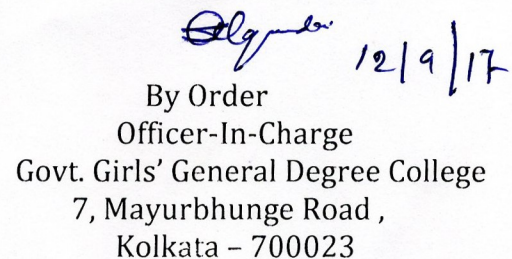 12/9/17
By Order
Officer-In-Charge
Govt. Girls' General Degree College
7, Mayurbhunge Road ,
Kolkata – 700023